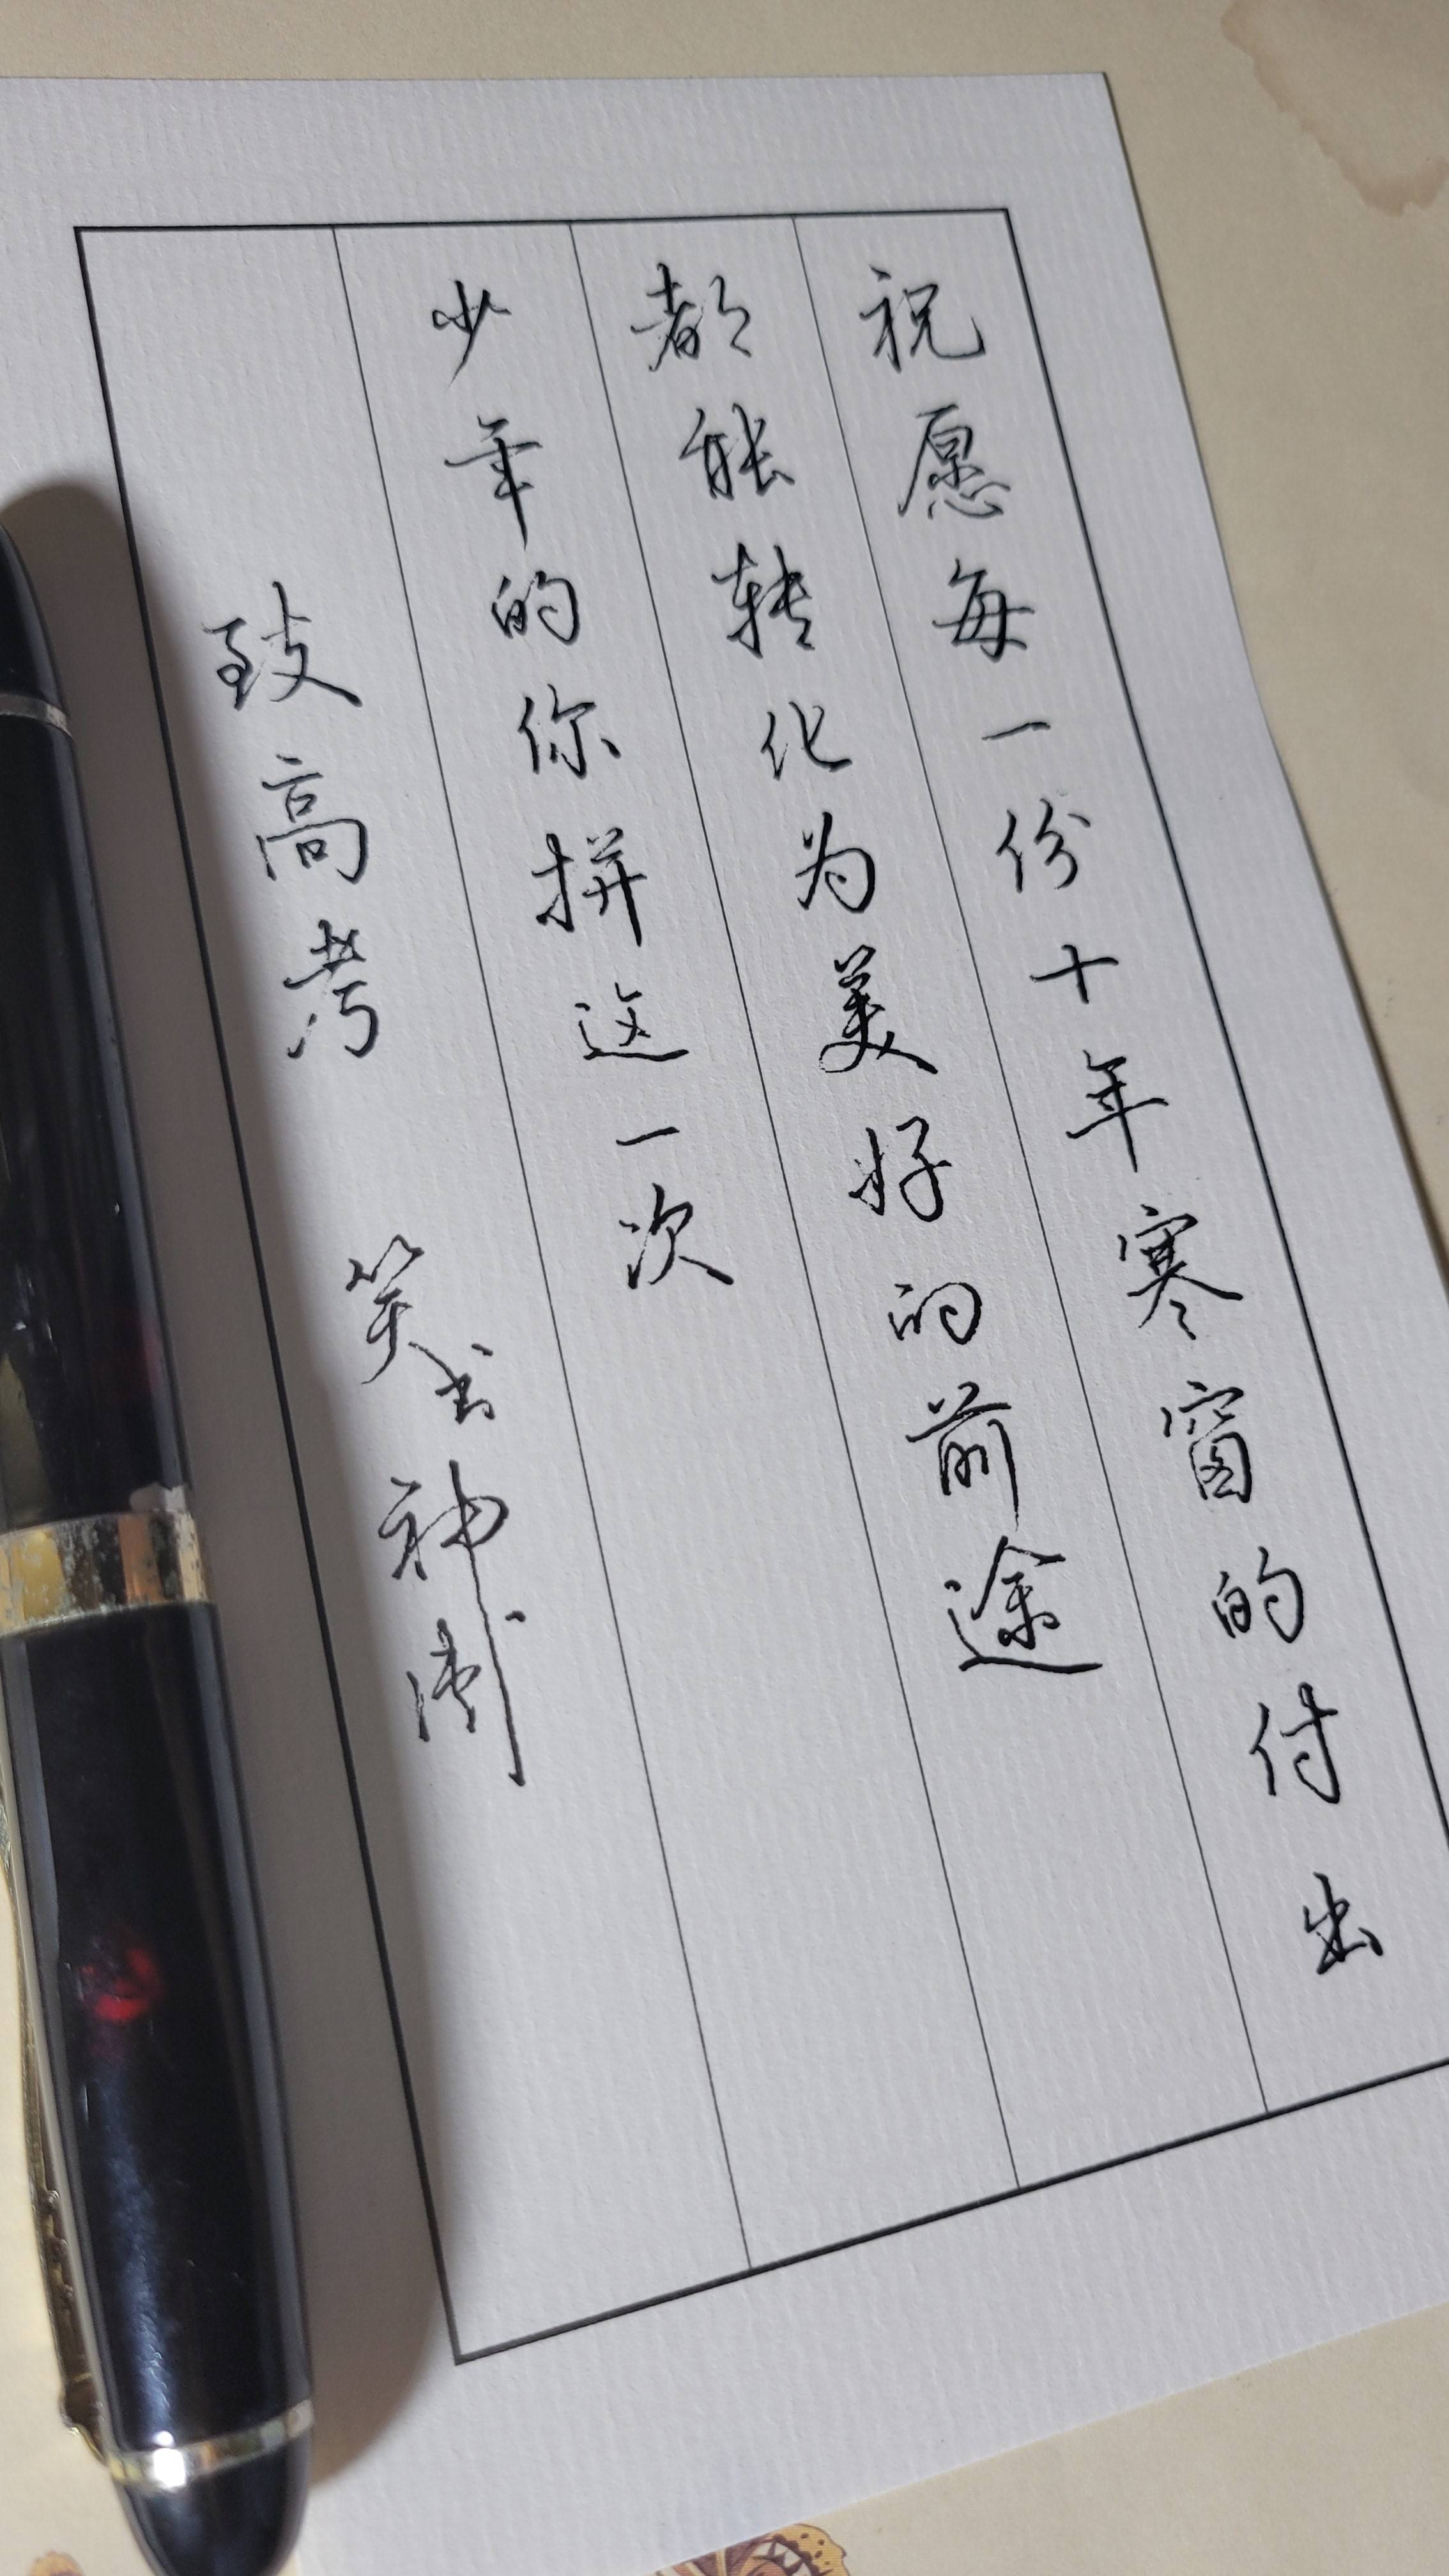 祝愿每一份十年寒窗的付出
都能转化为美好的前途
少年的你拼这一次
致高考